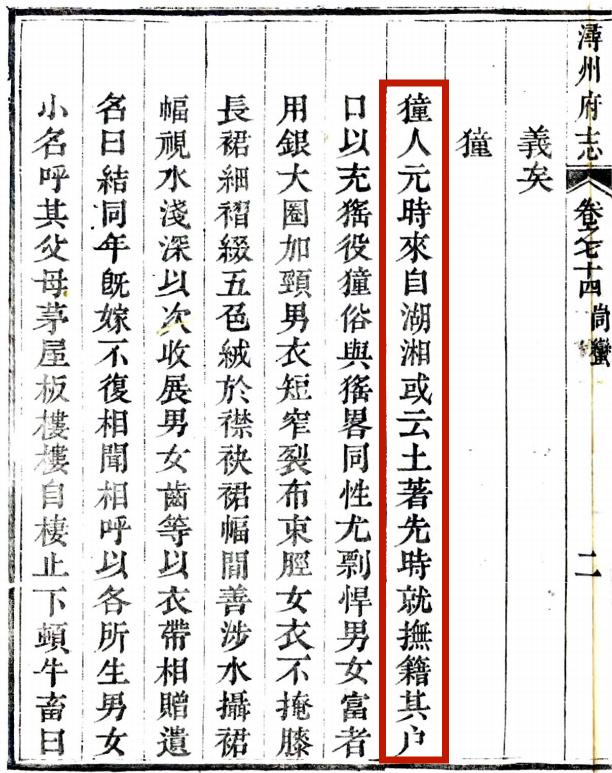 潯州府志 卷之七十四 峝蠻 二
義矣
獞
獞人元時來自湖湘或云土著先時就撫籍其户
口以充猺役獞俗與猺畧同性尤剽悍男女富者
用銀大圈加頸男衣短窄裂布束脛女衣不掩膝
長裙細褶綴五色絨於襟袂裙幅間善涉水攝裙
幅視水淺深以次收展男女齒等以衣帶相贈遺
名曰結同年旣嫁不復相聞相呼以各所生男女
小名呼其父母茅屋板樓樓自棲止下頓牛畜曰